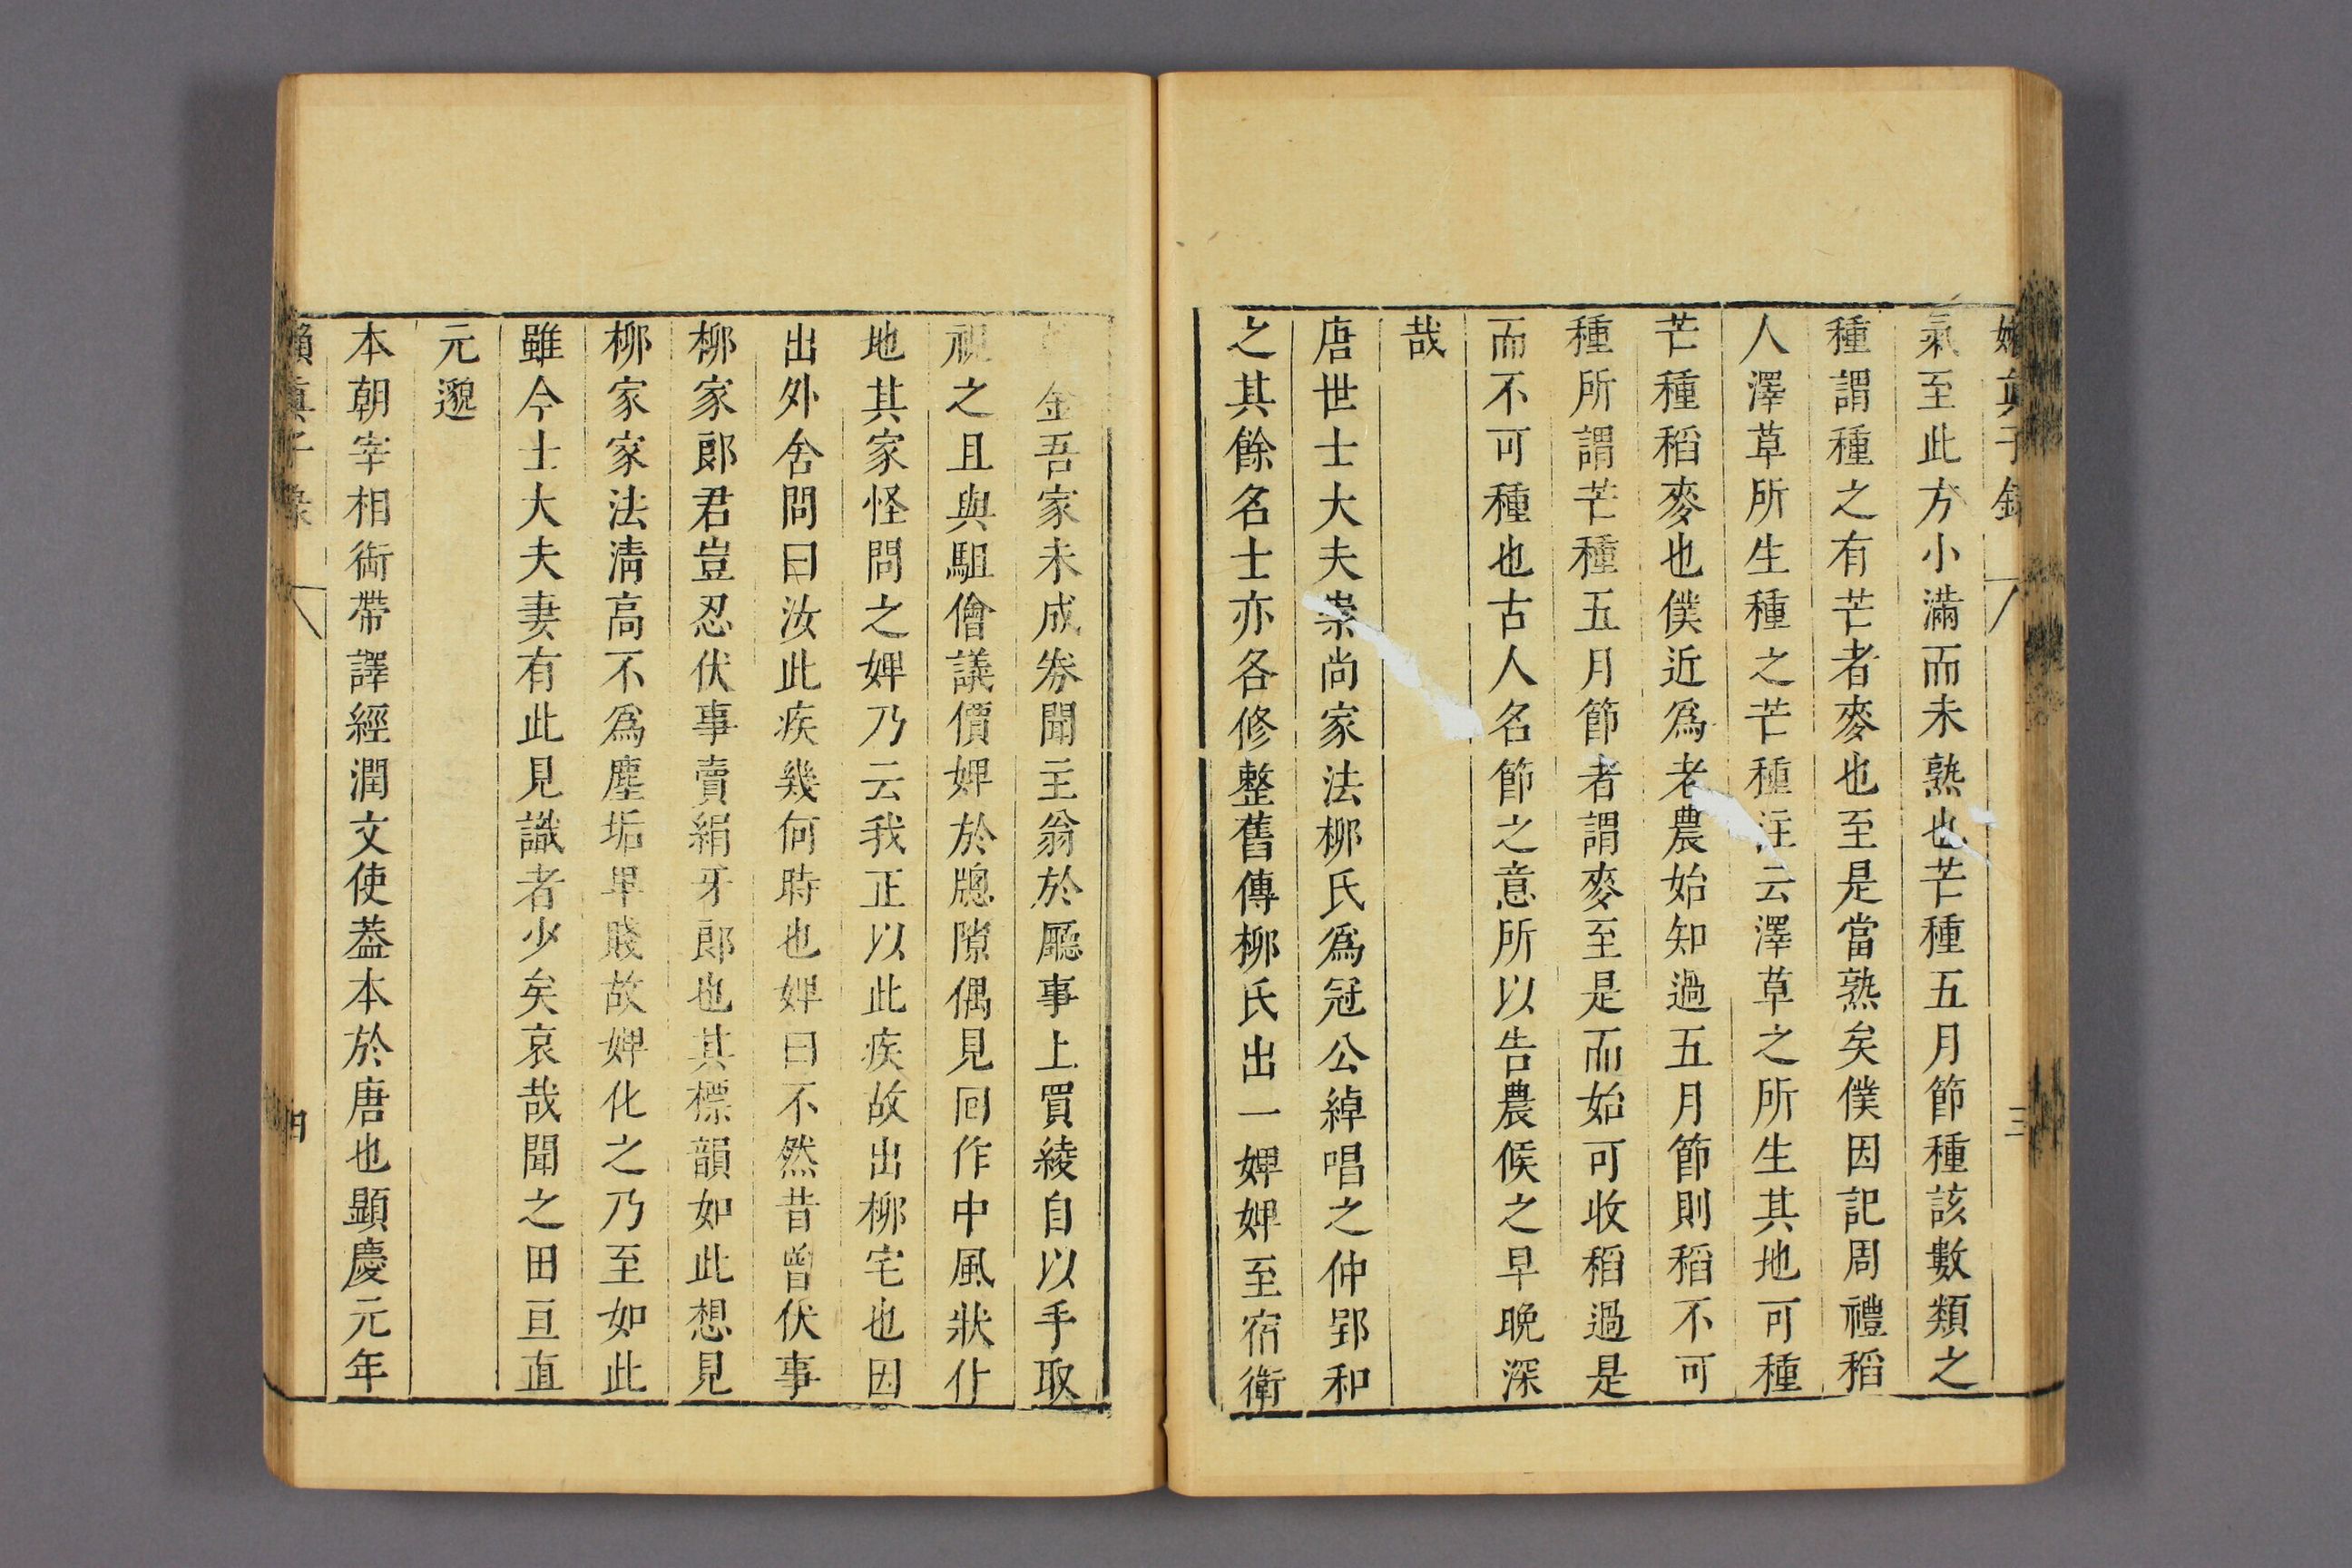 真子錄 三
氣至此方小滿而未熟也芒種五月節種該數類之
種謂種之有芒者麥也至是當熟矣僕因記周禮稻
人澤草所生種之芒種注云澤草之所生其地可種
芒種稻麥也僕近爲老農始知過五月節則稻不可
種所謂芒種五月節者謂麥至是而始可收稻過是
而不可種也古人名節之意所以告農候之早晚深
哉
唐世士大夫崇尚家法柳氏爲冠公綽唱之仲郢和
之其餘名士亦各修整舊傳柳氏出一婢婢至宿衛
金吾家未成券聞主翁於廳事上買綾自以手取
視之且與駔儈議價婢於牕隙偶見囘作中風狀仆
地其家怪問之婢乃云我正以此疾故出柳宅也因
出外舍問曰汝此疾幾何時也婢曰不然昔曾伏事
柳家郎君豈忍伏事賣絹牙郎也其標韻如此想見
柳家家法清高不爲塵垢卑賤故婢化之乃至如此
雖今士大夫妻有此見識者少矣哀哉聞之田亘直
元邈
本朝宰相銜帶譯經潤文使葢本於唐也顯慶元年
嬾真子錄 四